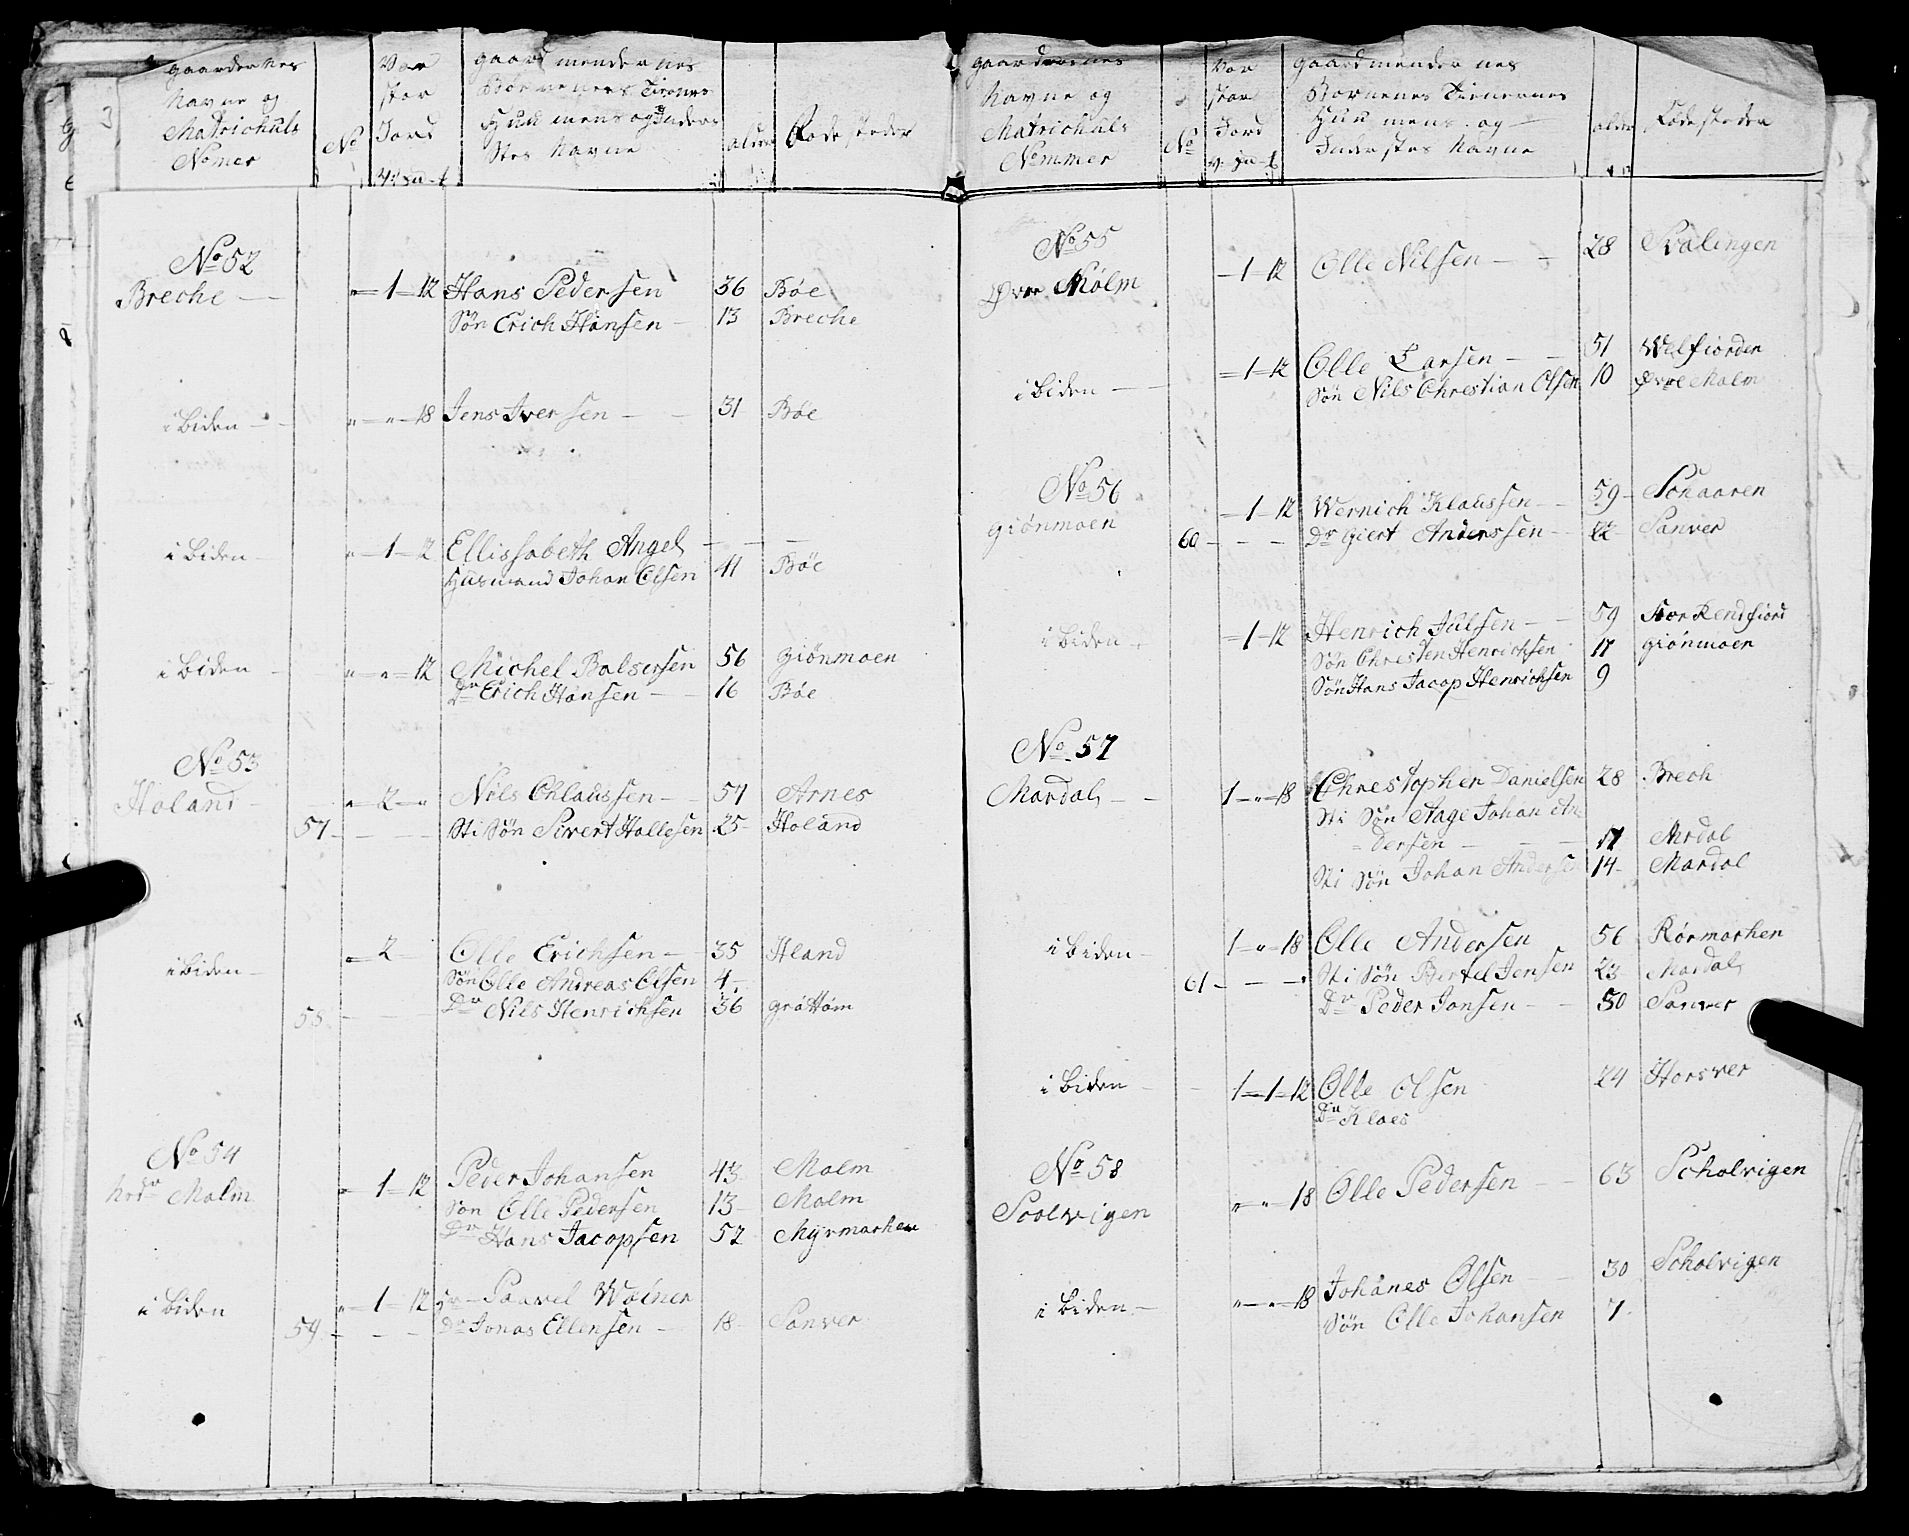 Gaardernes Navne og Matrichuls Nomer | No | Vor stor Jord V: pu - f | gaardmendernes Børnenes Tienernes Huumens og Inderstes Navne | alder | Fødesteder
No 52
Breche — | " — 1 — 12 | Hans Pedersen | 36 | Bøe
Søn Erich Hansen — | 13 | Breche
i biden — | " — " — 18 | Jens Iversen — — | 31 | Bøe
i biden — | " — 1 — 12 | Ellissabeth Angel — — —
Husmand Johan Olsen | 41 | Bøe
i biden — | " — " — 12 | Michel Balsersen | 56 | giønmoen
Dr Erich Hansen — — | 16 | Bøe
No 53
Holand — | " — 2 — " | Nils Chlaussen — — | 54 | Arnes
57 — — — — | Sti Søn Sivert Hallesen | 25 | Holand
i biden — | " — 2 — | Olle Erichsen — — | 35 | Hland
Søn Olle Andreas Olsen | 4
58 — — — | Dr Nils Henrichsen | 36 | grottøm
No 54
Malm | " — 1 — 12 | Peder Johansen | 43 | Malm
Søn Olle Pedersen | 13 | Malm
Dr Hans Jacopsen | 52 | Myrmarhen
i biden | " — 1 — 12 | Hr — Paavel Weiner
59 — — — | Dr Jonas Ellensen — | 18 | Sanver
gaardernes Navne og Matrichuls Nommer | No | Vor stor Jord v: pu - f | gaardmendernes Børnenes Tienernes Huumens og Inderstes Navne | alder | Fødesteder
No 55
Øvre Molm | — 1 — 12 | Olle Nilsen — — | 28 | Svalingen
i biden — — | — 1 — 12 | Olle Larsen — — | 51 | Welfiorden
Søn Nils Chrestian Olsen | 10 | Øvre Malm
No 56
giønmoen | — 1 — 12 | Wernich Klaussen — | 59 | Schaaren
60 — — — | Dr Giert Anderssen — | Sanver
i biden — | — 1 — 12 | Henrich Julsen — — | 59 | Stor Rendfiord
Søn Chresten Henrichsen | 17 | giønmoen
Søn Hans Jacop Henrichsen | 9
No 57
Mardal — — | 1 — " — 18 | Chrestopher Danielsen | 28 | Brech
Sti Søn Aage Johan An
= dersen — — — | 17 | Mrdal
Sti Søn Johan Anderse | 14 | Mardal
i biden — | 1 — " — 18 | Olle Andersen | 56 | Rørmarhen
61 — — — | Sti Søn Bertel Jensen | 23 | Mardal
Dr Peder Jonsen — — | 50 | Sanver
i biden — | 1 — 1 — 12 | Olle Olsen | 24 | Horsver
Dr Klaes
No 58
Scolvigen | " — " — 18 | Olle Pedersen — — | 63 | Scholvigen
i biden — | " — " — 18 | Johanes Olsen — — | 30 | Scholvigen
Søn Olle Johansen | 7